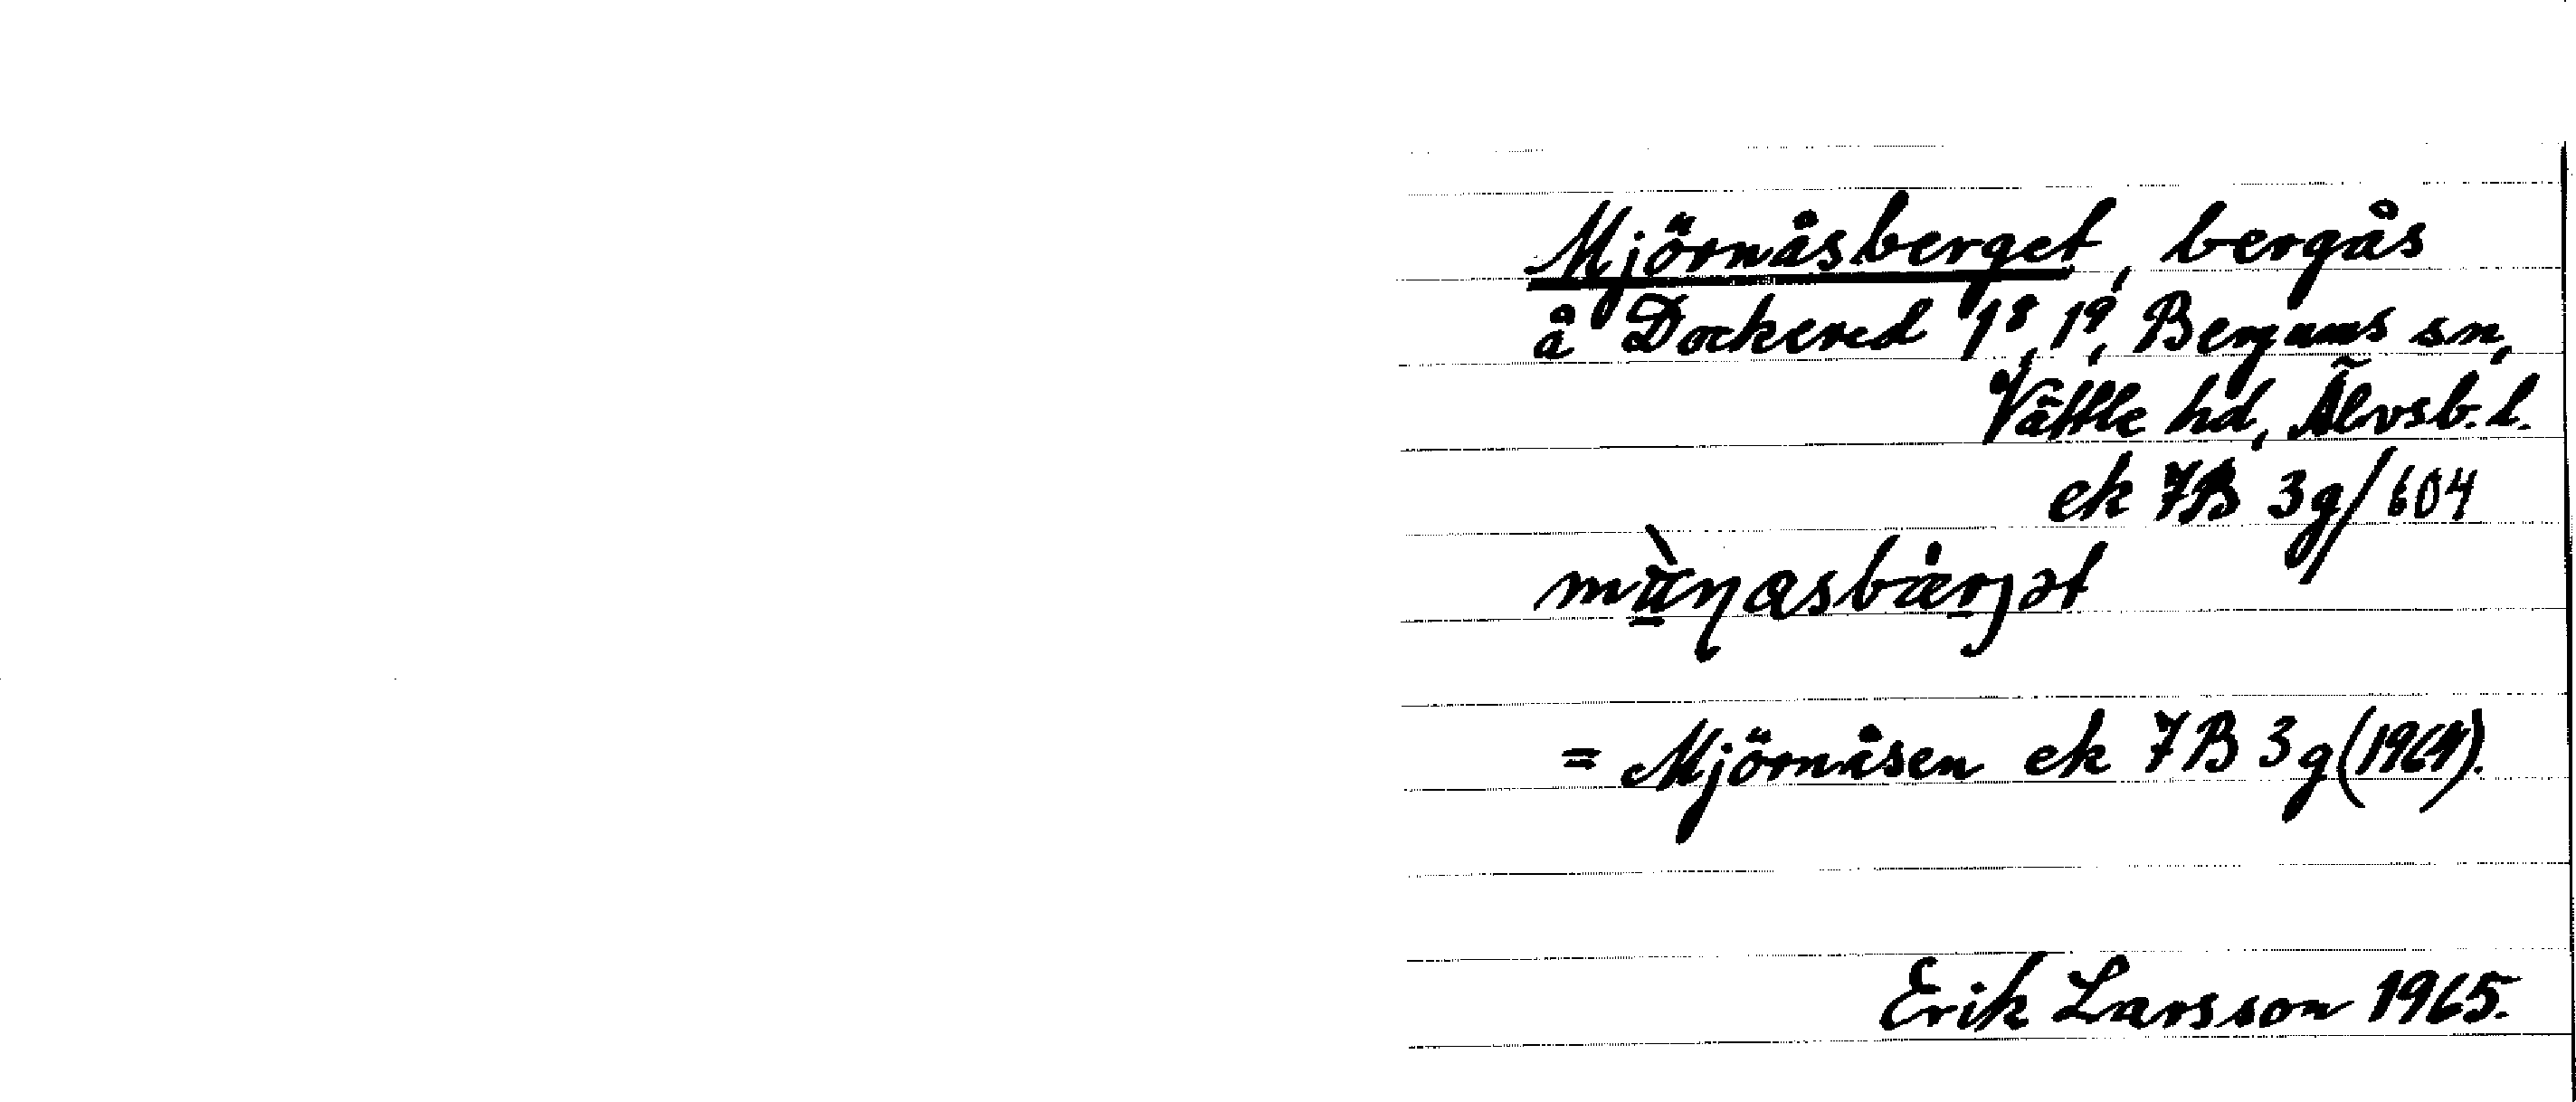 Mjörnåsberget, bergås
å Dockered 1⁸, 1⁹, Bergums sn,
Vättle hd, Älvsb. l.
ek 7B 3g/604
= Mjörnåsen ek 7B 3g (1961).
Erik Larsson 1965.